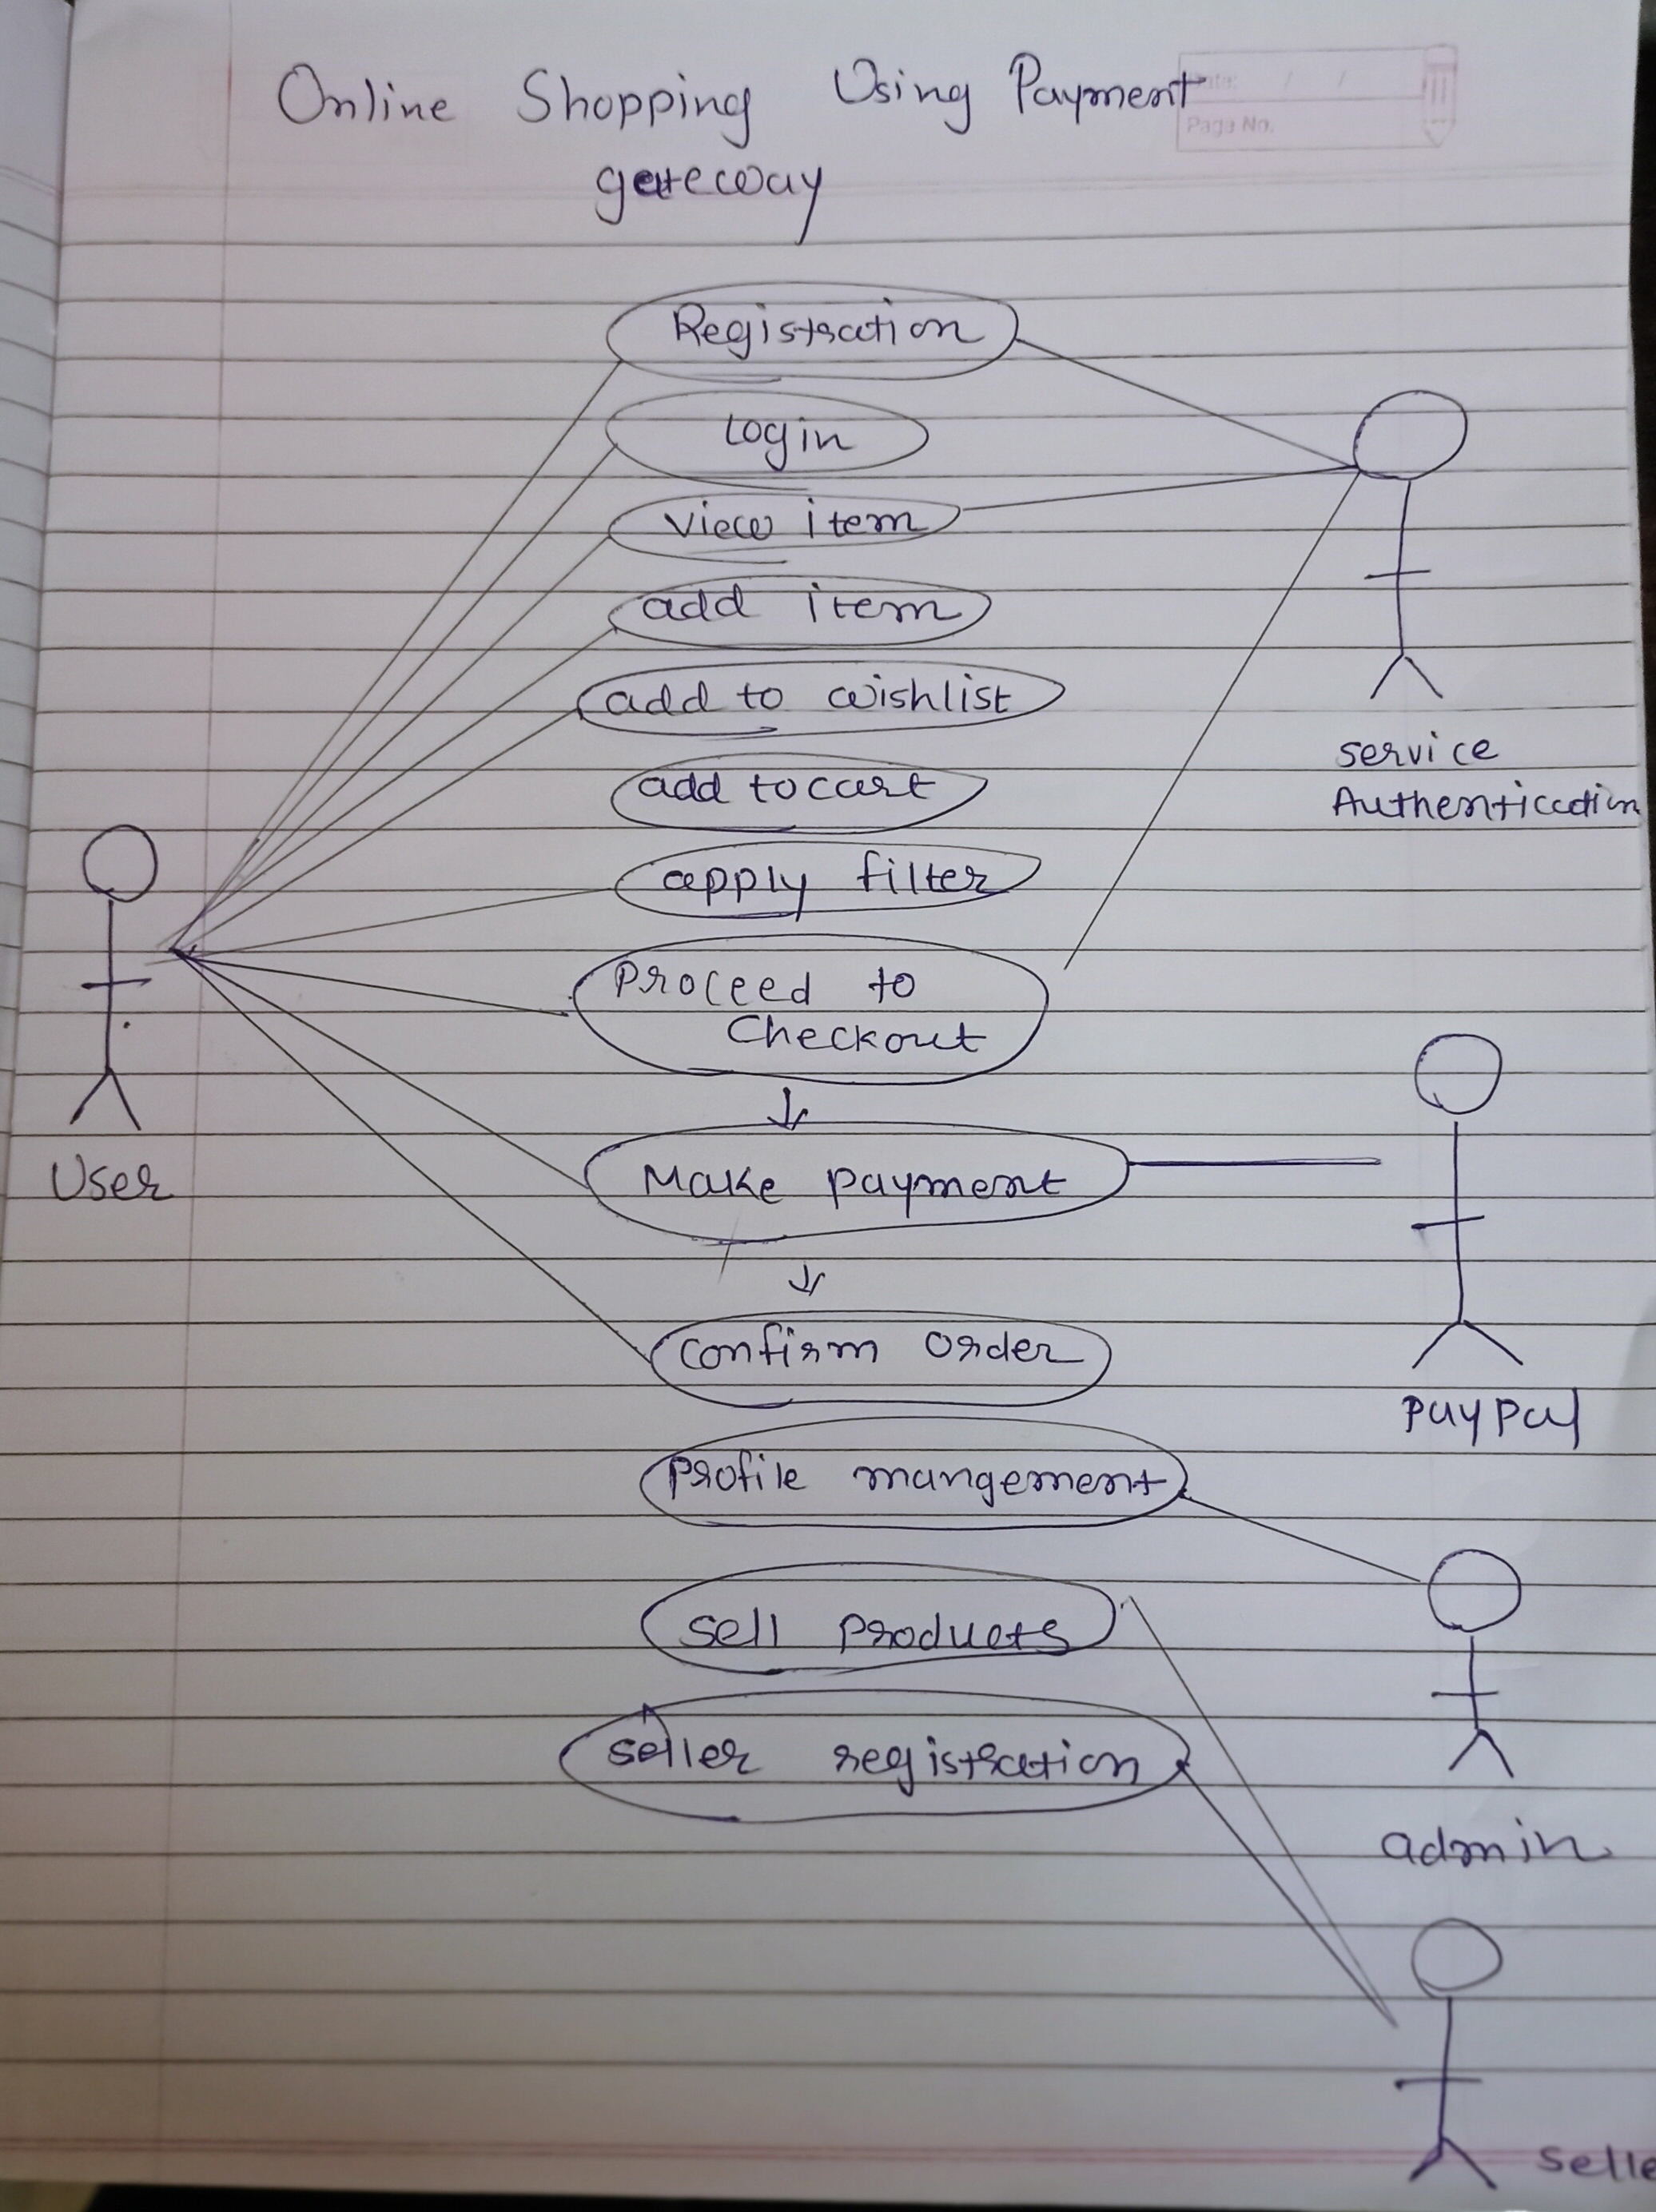 Online Shopping Using Payment
gateway
Date: / /
Page No.
Registration
Login
view item
add item
add to wishlist
add to cart
apply filter
Proceed to
Checkout
Make payment
confirm order
Profile mangement
sell products
seller registration
User
service
Authentication
paypal
admin
selle